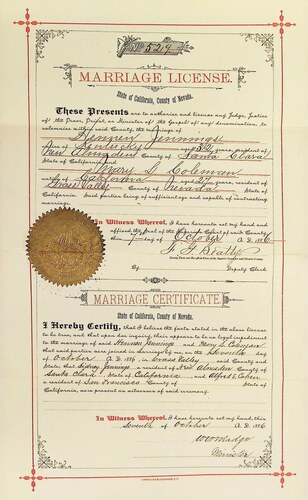 No 529
MARRIAGE LICENSE.
State of California, County of Nevada.
These Presents are to authorize and license any Judge, Justice
of the Peace, Priest, or Minister of the Gospel of any denomination, to
solemnize within said County, the marriage of
Hennen Jennings
native of Kentucky aged 32 years, resident of
New Almaden County of Santa Clara
State of California and
Mary L Coleman
native of California aged years, resident of
Grass Valley County of Nevada
State of California Said parties being of sufficient age and capable of contracting
marriage.
In Witness Whereof, I have hereunto set my hand and
affixed the Seal of the Superior Court of said County
this 7 day of October A.D. 1886
J. G. Beatty
By Deputy Clerk
MARRIAGE CERTIFICATE.
State of California, County of Nevada.
I Hereby Certify, that I believe the facts stated in the above license
to be true, and that upon due inquiry there appears to be no legal impediment
to the marriage of said Hennen Jennings and Mary L. Coleman
that said parties were joined in marriage by me, on the Seventh day
of October A.D. 1886 in Grass Valley said County and
State; that Sidney Jennings a resident of New Almaden County of
Santa Clara State of California and Alfred E.
a resident of San Francisco County of State of
California, were present as witnesses of said ceremony.
In Witness Whereof, I have hereunto set my hand, this
Seventh of October A.D. 1886
Minister